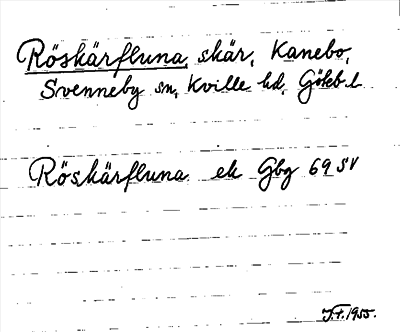 Röskärfluna, skär, Kanebo,
Svenneby sn, Kville hd, Götebl.
Röskärfluna ek Gbg 69 SV
J.F. 1955.